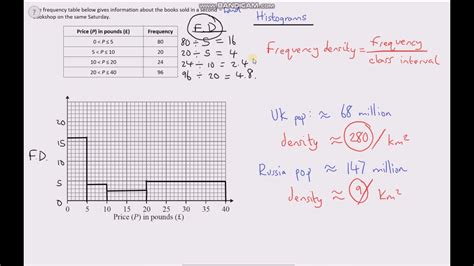 WWW.BANDICAM.COM
7
frequency table below gives information about the books sold in a second
bookshop on the same Saturday.
Price (P) in pounds (£) Frequency
0 < P ≤ 5 80
5 < P ≤ 10 20
10 < P ≤ 20 24
20 < P ≤ 40 96
FD
80 ÷ 5 = 16
20 ÷ 5 = 4
24 ÷ 10 = 2.4
96 ÷ 20 = 4.8
Histograms
Frequency density = frequency
class interval
UK pop: ≈ 68 million
density ≈ 280/km²
Russia pop ≈ 147 million
density ≈ 9/km²
F.D.
20
15
10
5
0
0 5 10 15 20 25 30 35 40
Price (P) in pounds (£)